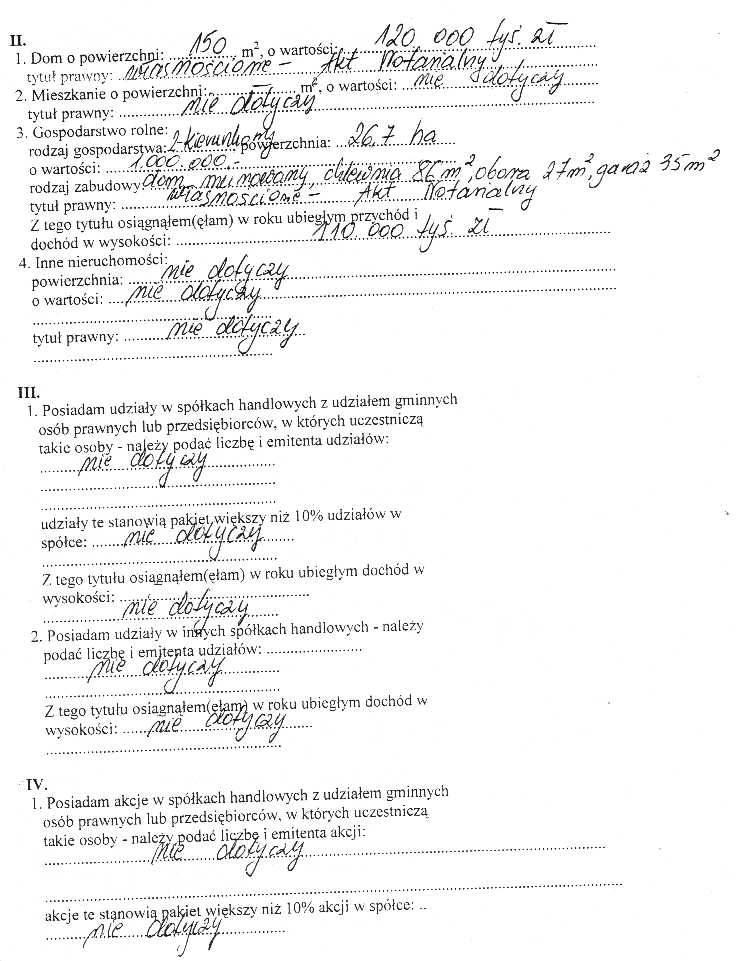 II.
1. Dom o powierzchni: 150 m², o wartości: 120 000 tyś. zł
tytuł prawny: własnościowe – Akt Notarialny
2. Mieszkanie o powierzchni: — m², o wartości: nie dotyczy
tytuł prawny: nie dotyczy
3. Gospodarstwo rolne:
rodzaj gospodarstwa: 2-kierunkowy powierzchnia: 26,7 ha
o wartości: 1.000.000,-
rodzaj zabudowy: dom murowany, chlewnia 86 m², obora 27m², garaż 35m²
tytuł prawny: własnościowe – Akt Notarialny
Z tego tytułu osiągnąłem(ęłam) w roku ubiegłym przychód i
dochód w wysokości: 110 000 tyś. zł
4. Inne nieruchomości:
powierzchnia: nie dotyczy
o wartości: nie dotyczy
tytuł prawny: nie dotyczy
III.
1. Posiadam udziały w spółkach handlowych z udziałem gminnych
osób prawnych lub przedsiębiorców, w których uczestniczą
takie osoby - należy podać liczbę i emitenta udziałów:
nie dotyczy
udziały te stanowią pakiet większy niż 10% udziałów w
spółce: nie dotyczy
Z tego tytułu osiągnąłem(ęłam) w roku ubiegłym dochód w
wysokości: nie dotyczy
2. Posiadam udziały w innych spółkach handlowych - należy
podać liczbę i emitenta udziałów:
nie dotyczy
Z tego tytułu osiągnąłem(ęłam) w roku ubiegłym dochód w
wysokości: nie dotyczy
IV.
1. Posiadam akcje w spółkach handlowych z udziałem gminnych
osób prawnych lub przedsiębiorców, w których uczestniczą
takie osoby - należy podać liczbę i emitenta akcji:
nie dotyczy
akcje te stanowią pakiet większy niż 10% akcji w spółce: ..
nie dotyczy